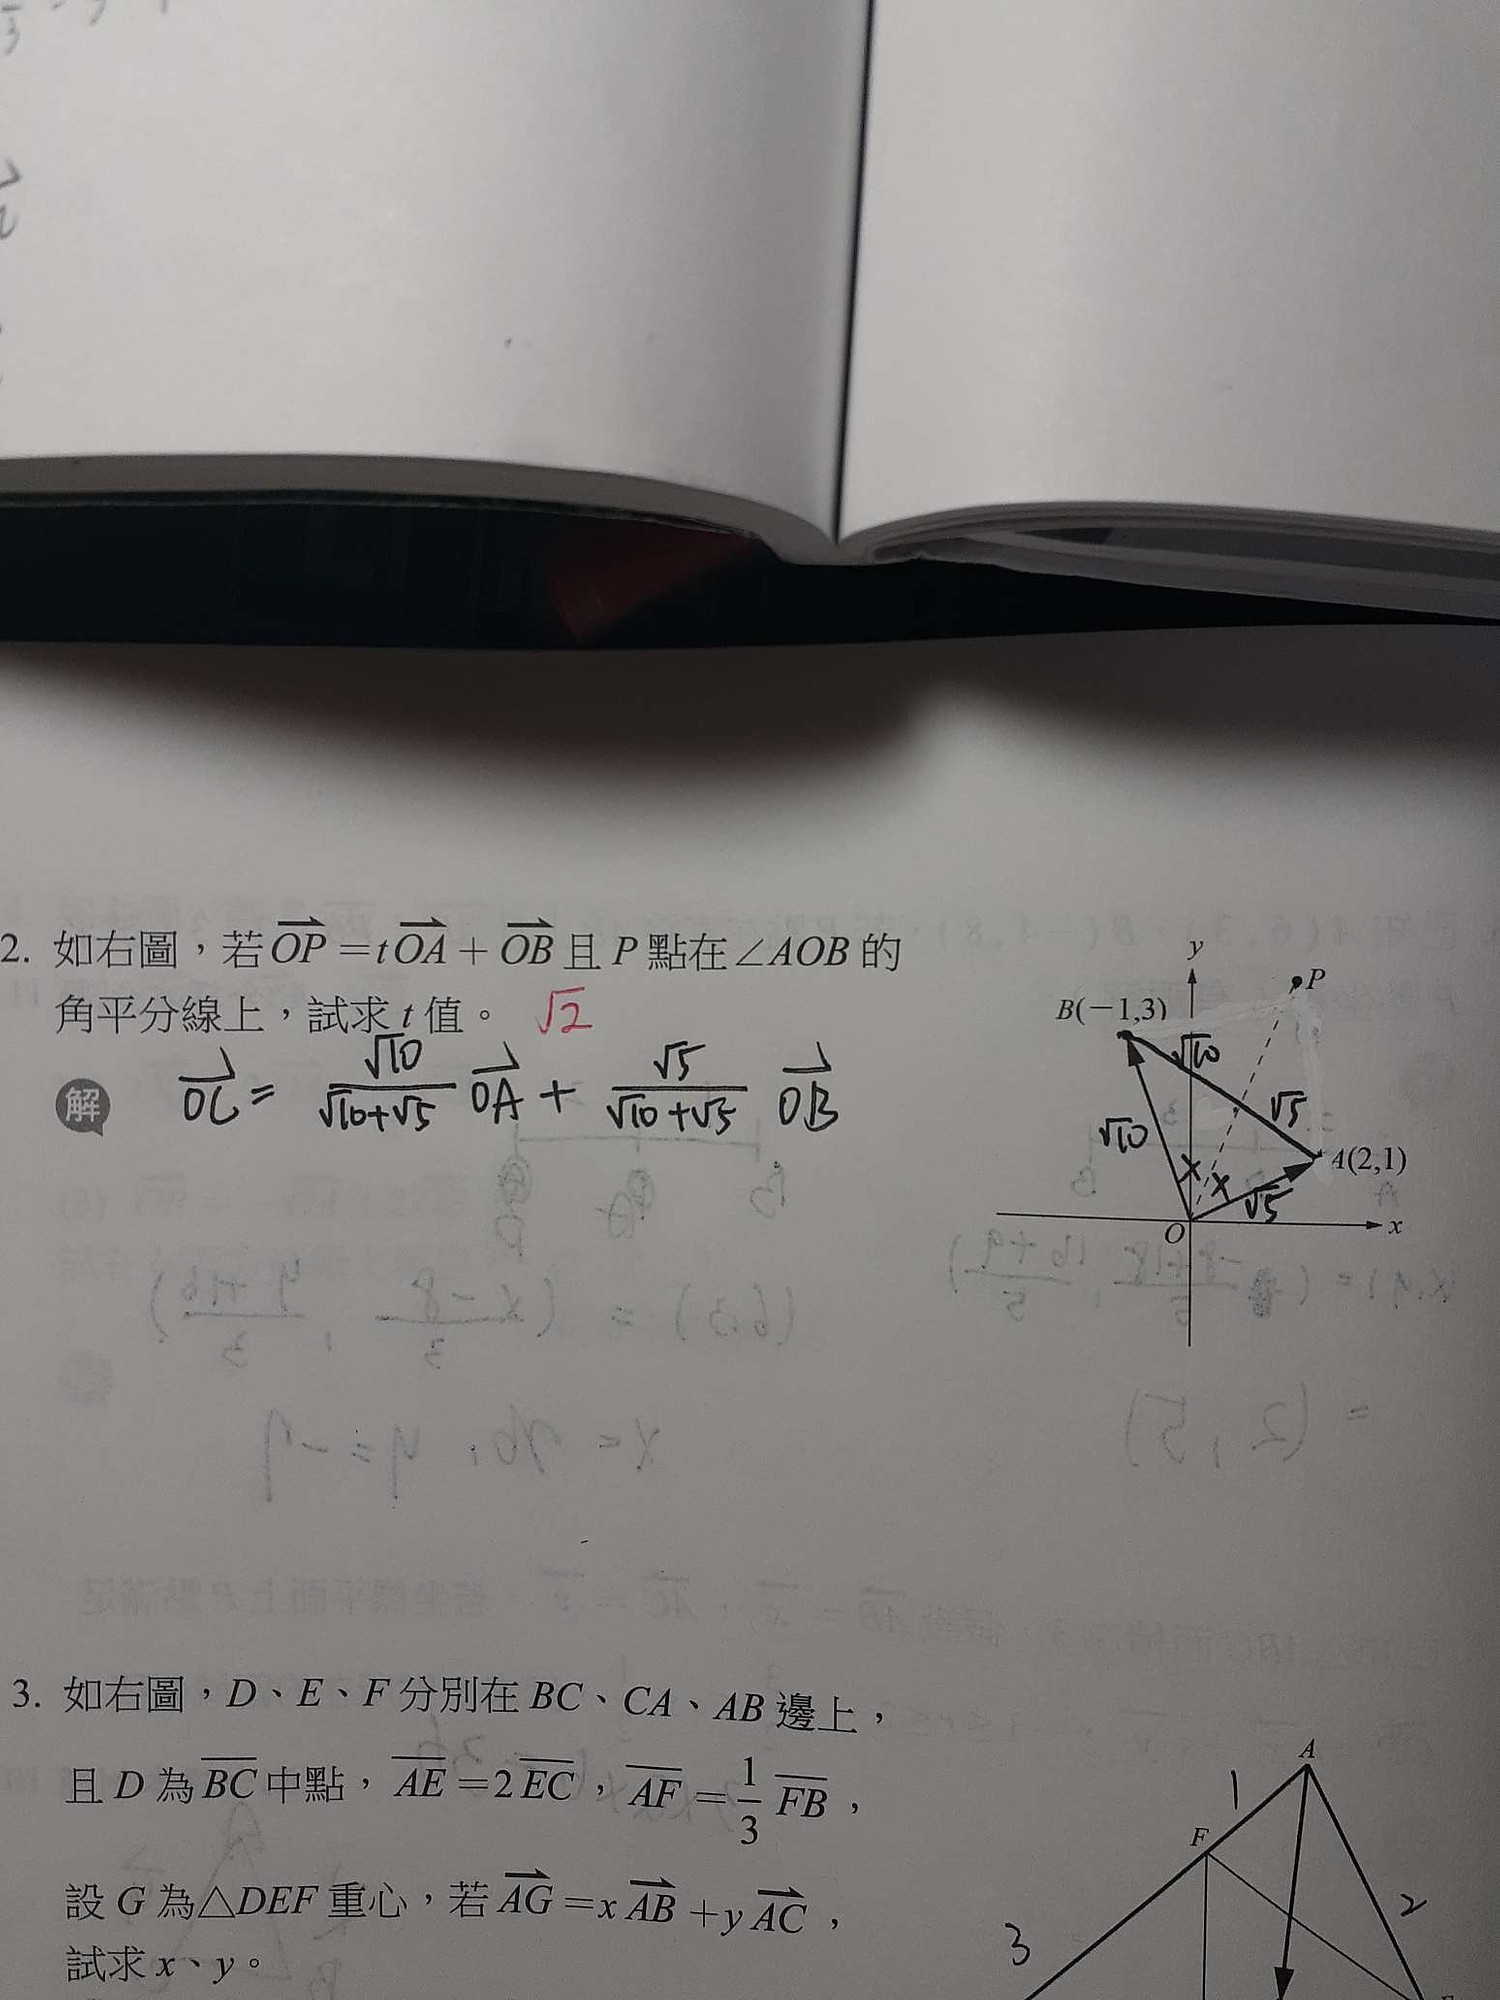 2. 如右圖，若 $\overrightarrow{OP}=t\overrightarrow{OA}+\overrightarrow{OB}$ 且 P 點在∠AOB 的
角平分線上，試求 t 值。 √2
解 $\overrightarrow{OC}=\frac{\sqrt{10}}{\sqrt{10}+\sqrt{5}}\overrightarrow{OA}+\frac{\sqrt{5}}{\sqrt{10}+\sqrt{5}}\overrightarrow{OB}$
y
P
B(−1,3)
√10
√5
√10
A(2,1)
√5
O
x
3. 如右圖，D、E、F 分別在 BC、CA、AB 邊上，
且 D 為 $\overline{BC}$ 中點，$\overline{AE}=2\overline{EC}$，$\overline{AF}=\frac{1}{3}\overline{FB}$，
設 G 為△DEF 重心，若 $\overrightarrow{AG}=x\overrightarrow{AB}+y\overrightarrow{AC}$，
試求 x、y。
A
1
F
2
3